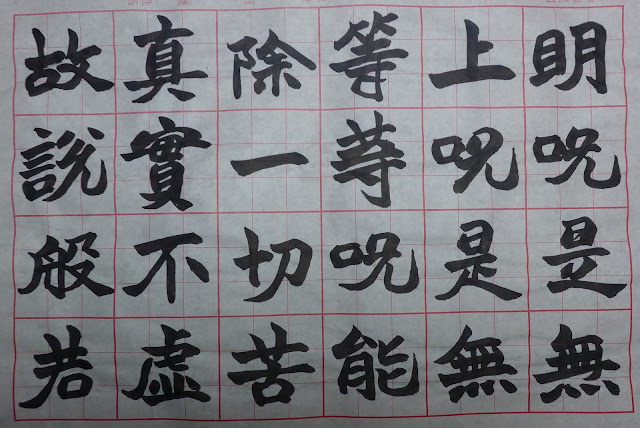 明呪是無
上呪是無
等等呪能
除一切苦
真實不虛
故說般若